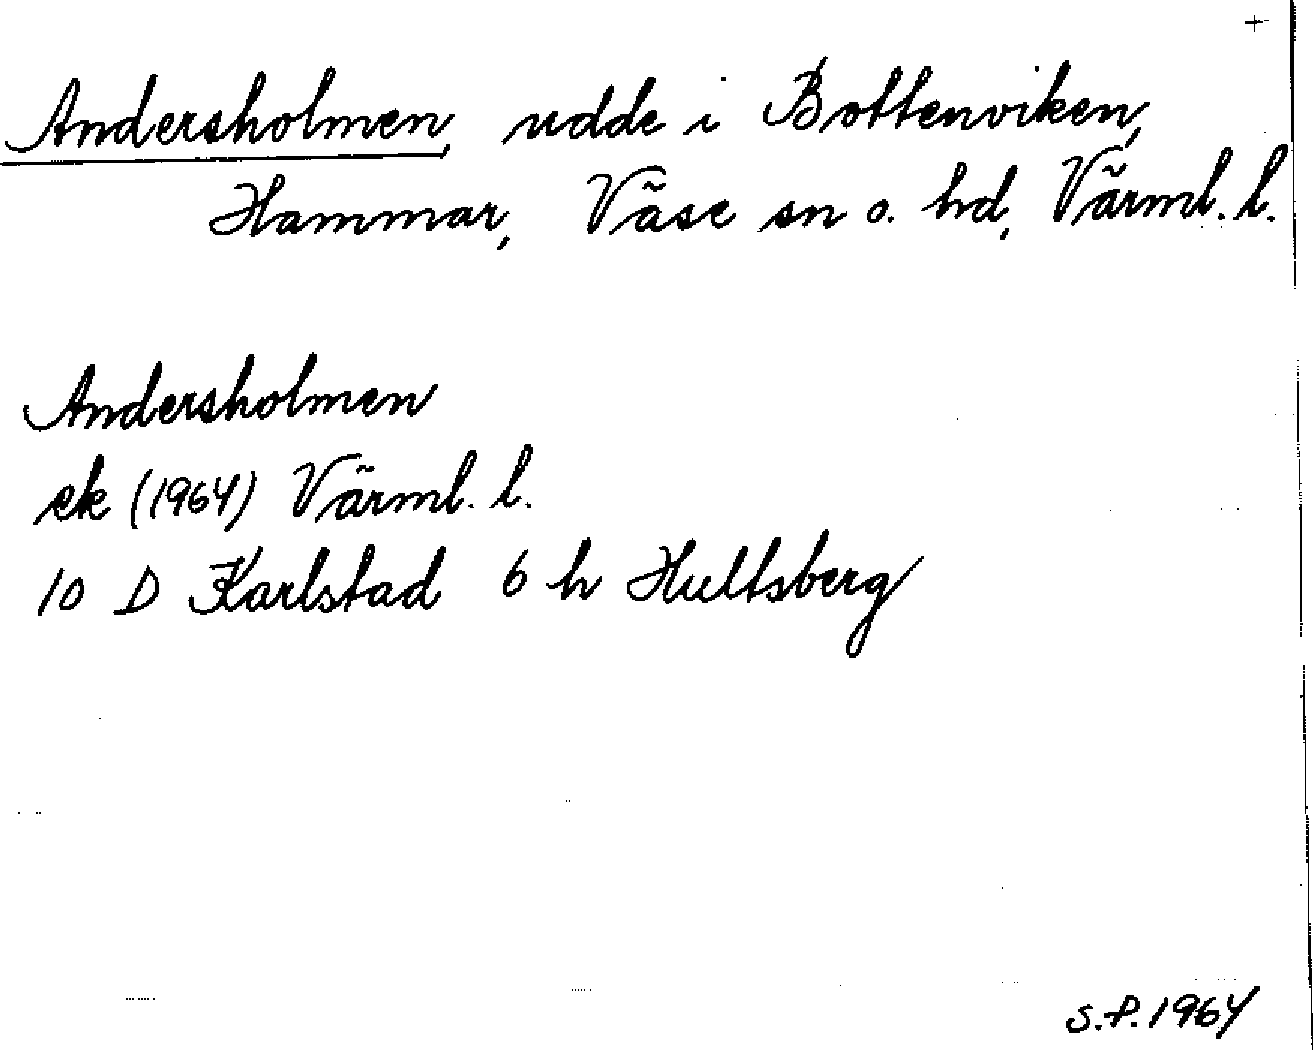 +
Andersholmen, udde i Bottenviken,
Hammar, Väse sn o. hd, Värml. l.
Andersholmen
ek (1964) Värml. l.
10 D Karlstad 6 h Hultsberg
S.P. 1964